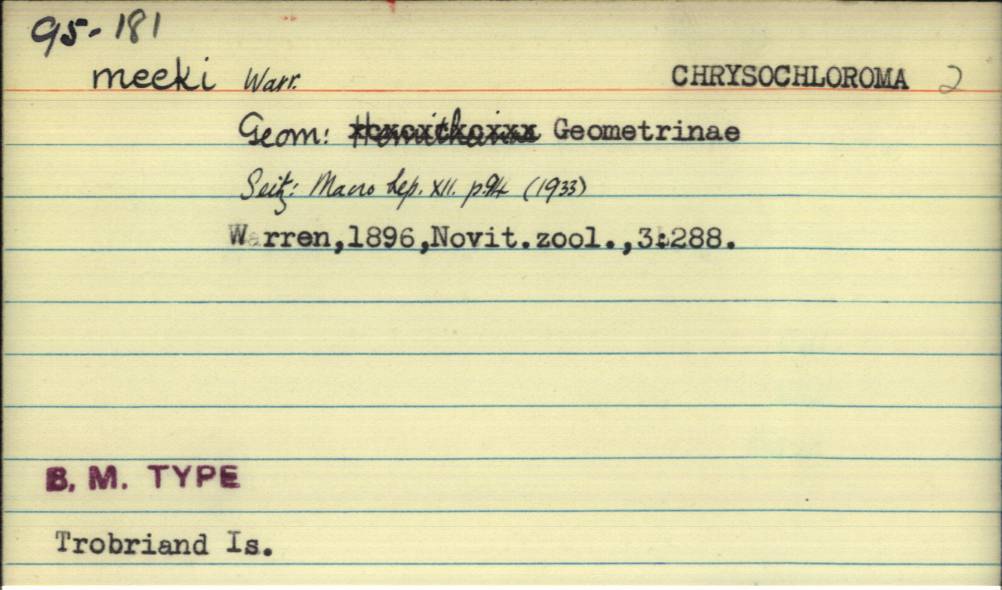 95-181
meeki Warr. CHRYSOCHLOROMA 2
Geom: Geometrinae
Seitz: Macro Lep. XII. p.94 (1933)
Warren,1896,Novit.zool.,3:288.
B. M. TYPE
Trobriand Is.